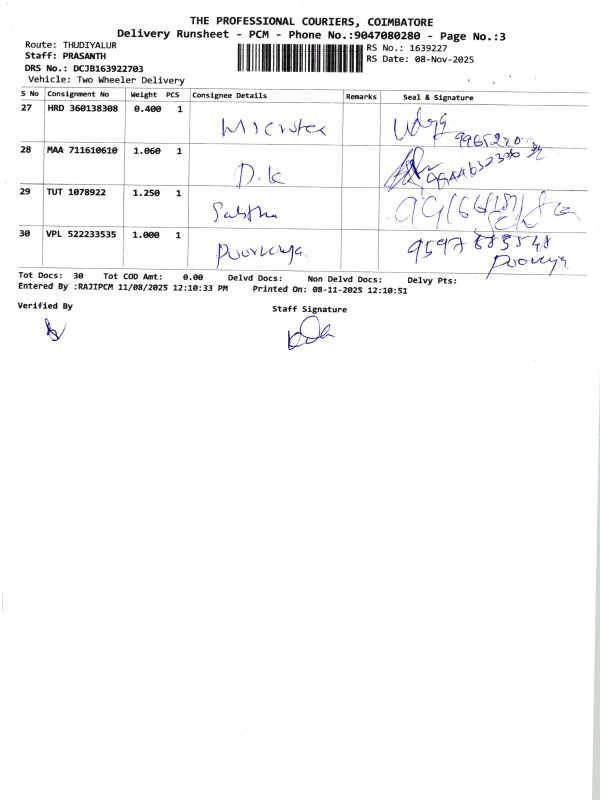 THE PROFESSIONAL COURIERS, COIMBATORE
Delivery Runsheet - PCM - Phone No.:9047080280 - Page No.:3
Route: THUDIYALUR
Staff: PRASANTH
DRS No.: DCJB163922703
Vehicle: Two Wheeler Delivery
RS No.: 1639227
RS Date: 08-Nov-2025
S No Consignment No Weight PCS Consignee Details Remarks Seal & Signature
27 HRD 360138308 0.400 1
28 MAA 711610610 1.060 1 D.K
29 TUT 1078922 1.250 1
30 VPL 522233535 1.000 1
Tot Docs: 30 Tot COD Amt: 0.00 Delvd Docs: Non Delvd Docs: Delvy Pts:
Entered By :RAJIPCM 11/08/2025 12:10:33 PM Printed On: 08-11-2025 12:10:51
Verified By
Staff Signature